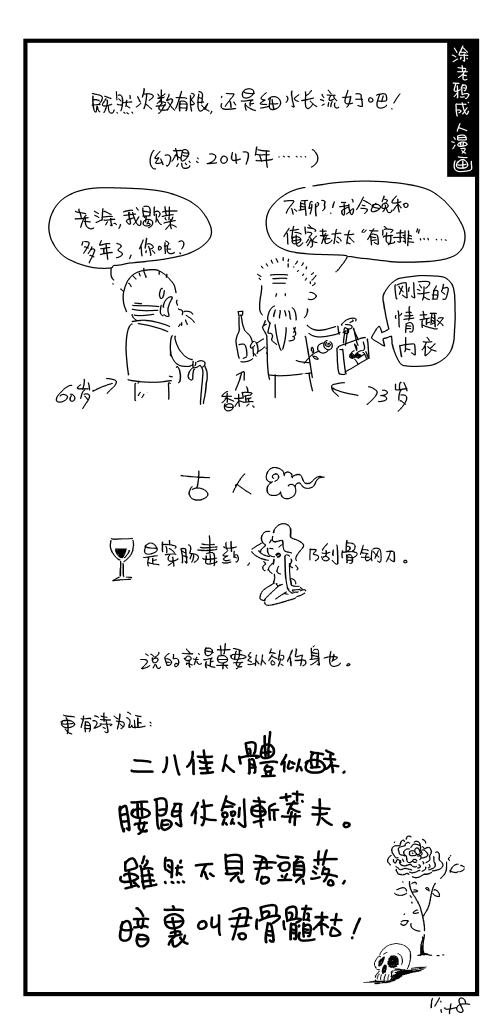 涂老鸦成人漫画
既然次数有限,还是细水长流好吧!
(幻想:2047年……)
老涂,我歇菜
多年了,你呢?
不聊了!我今晚和
俺家老太太“有安排”……
刚买的
情趣
内衣
60岁
香槟
73岁
古人云
是穿肠毒药,
乃刮骨钢刀。
说的就是莫要纵欲伤身也。
更有诗为证:
二八佳人體似酥,
腰間仗劍斬莽夫。
雖然不見君頭落,
暗裏叫君骨髓枯!